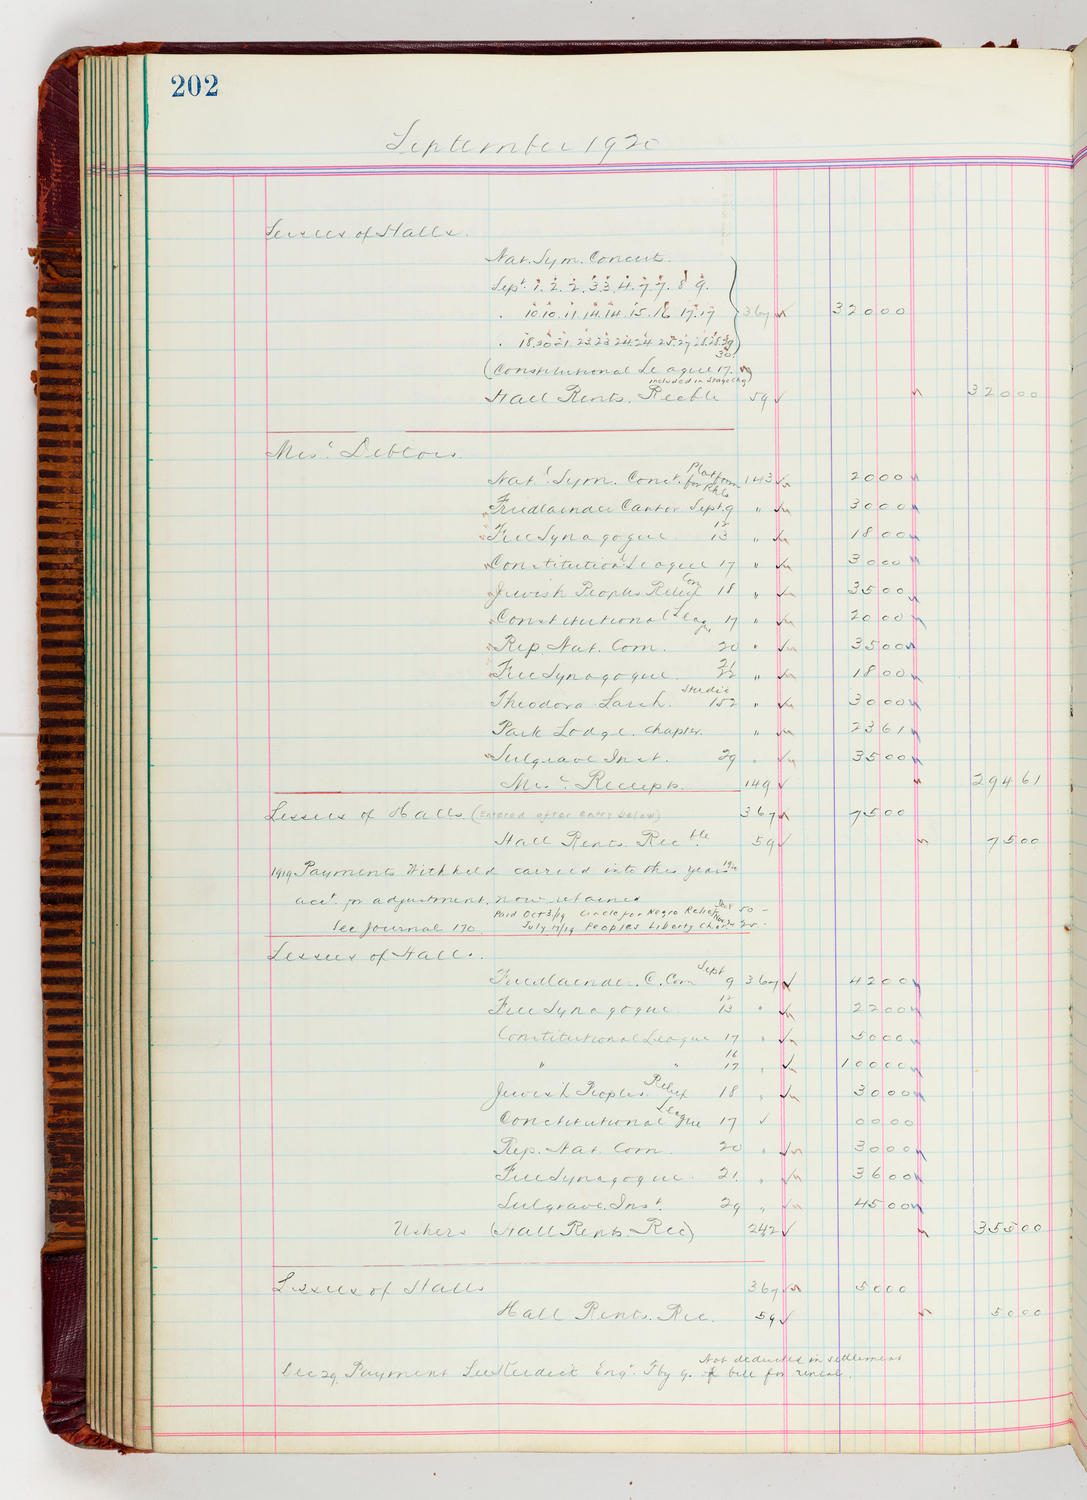 202
September 1920
Lessees of Halls.
Nat. Sym. Concert.
Sept. 1. 2. 2. 3 3. 4. 7. 7. 8 9.
" 10 10. 11. 14. 14. 15. 16 17. 17 367 32000
" 18. 20 21. 23. 23 24. 24 25. 27 28. 28. 29
30.
(Constitutional League 17.)
included in Stage Chg
Hall Rents. Recble 59 32000
Misc. Debtors.
Natl. Sym. Conct. Platform for Rhls 143 2000
Friedlaender Cantor Sept. 9 " 3000
Free Synagogue 12 13 " 1800
Constitution'l League 17 " 3000
Jewish Peoples Relief Com 18 " 3500
Constitutional Leag. 17 " 2000
Rep. Nat. Com. 20 " 3500
Free Synagogue. 21 22 " 1800
Theodora Larsh. Studio 152 " 3000
Park Lodge. Chapter. " 2361
Sulgrave Inst. 29 " 3500
Misc. Receipts. 149 29461
Lessees of Halls (Entered after Entry below) 367 7500
Hall Rents. Recble. 59 7500
1919 Payments Withheld carried into this years 1920
acct. for adjustment, now retained
Paid Oct 3/19 Circle for Negro Relief 50 –
See Journal 170. July 17/19 Peoples Liberty 25 –
Lessees of Halls.
Friedlaender. C. Com Sept 9 367 4200
Free Synagogue 12 13 " 2200
Constitutional League 17 " 5000
" " 16 17 " 10000
Jewish Peoples. Relief 18 " 3000
Constitutional League 17 0000
Rep. Nat. Com. 20 " 3000
Free Synagogue. 21. " 3600
Sulgrave. Inst. 29 " 4500
Ushers (Hall Rents. Rec) 242 35500
Lessees of Halls 367 5000
Hall Rents. Rec. 59 5000
Not deducted in settlement
Dec 29. Payment Engr. of bill for rental.